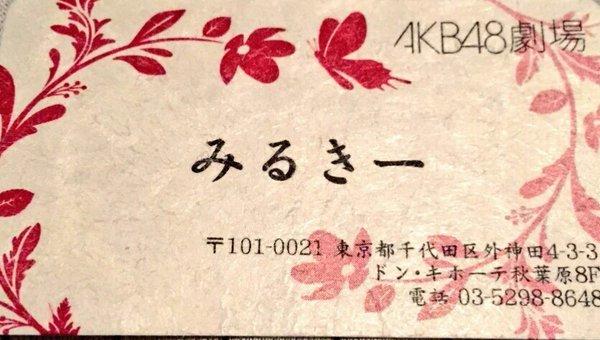 AKB48劇場
みるきー
〒101-0021 東京都千代田区外神田4-3-3
ドン・キホーテ秋葉原8F
電話 03-5298-8648